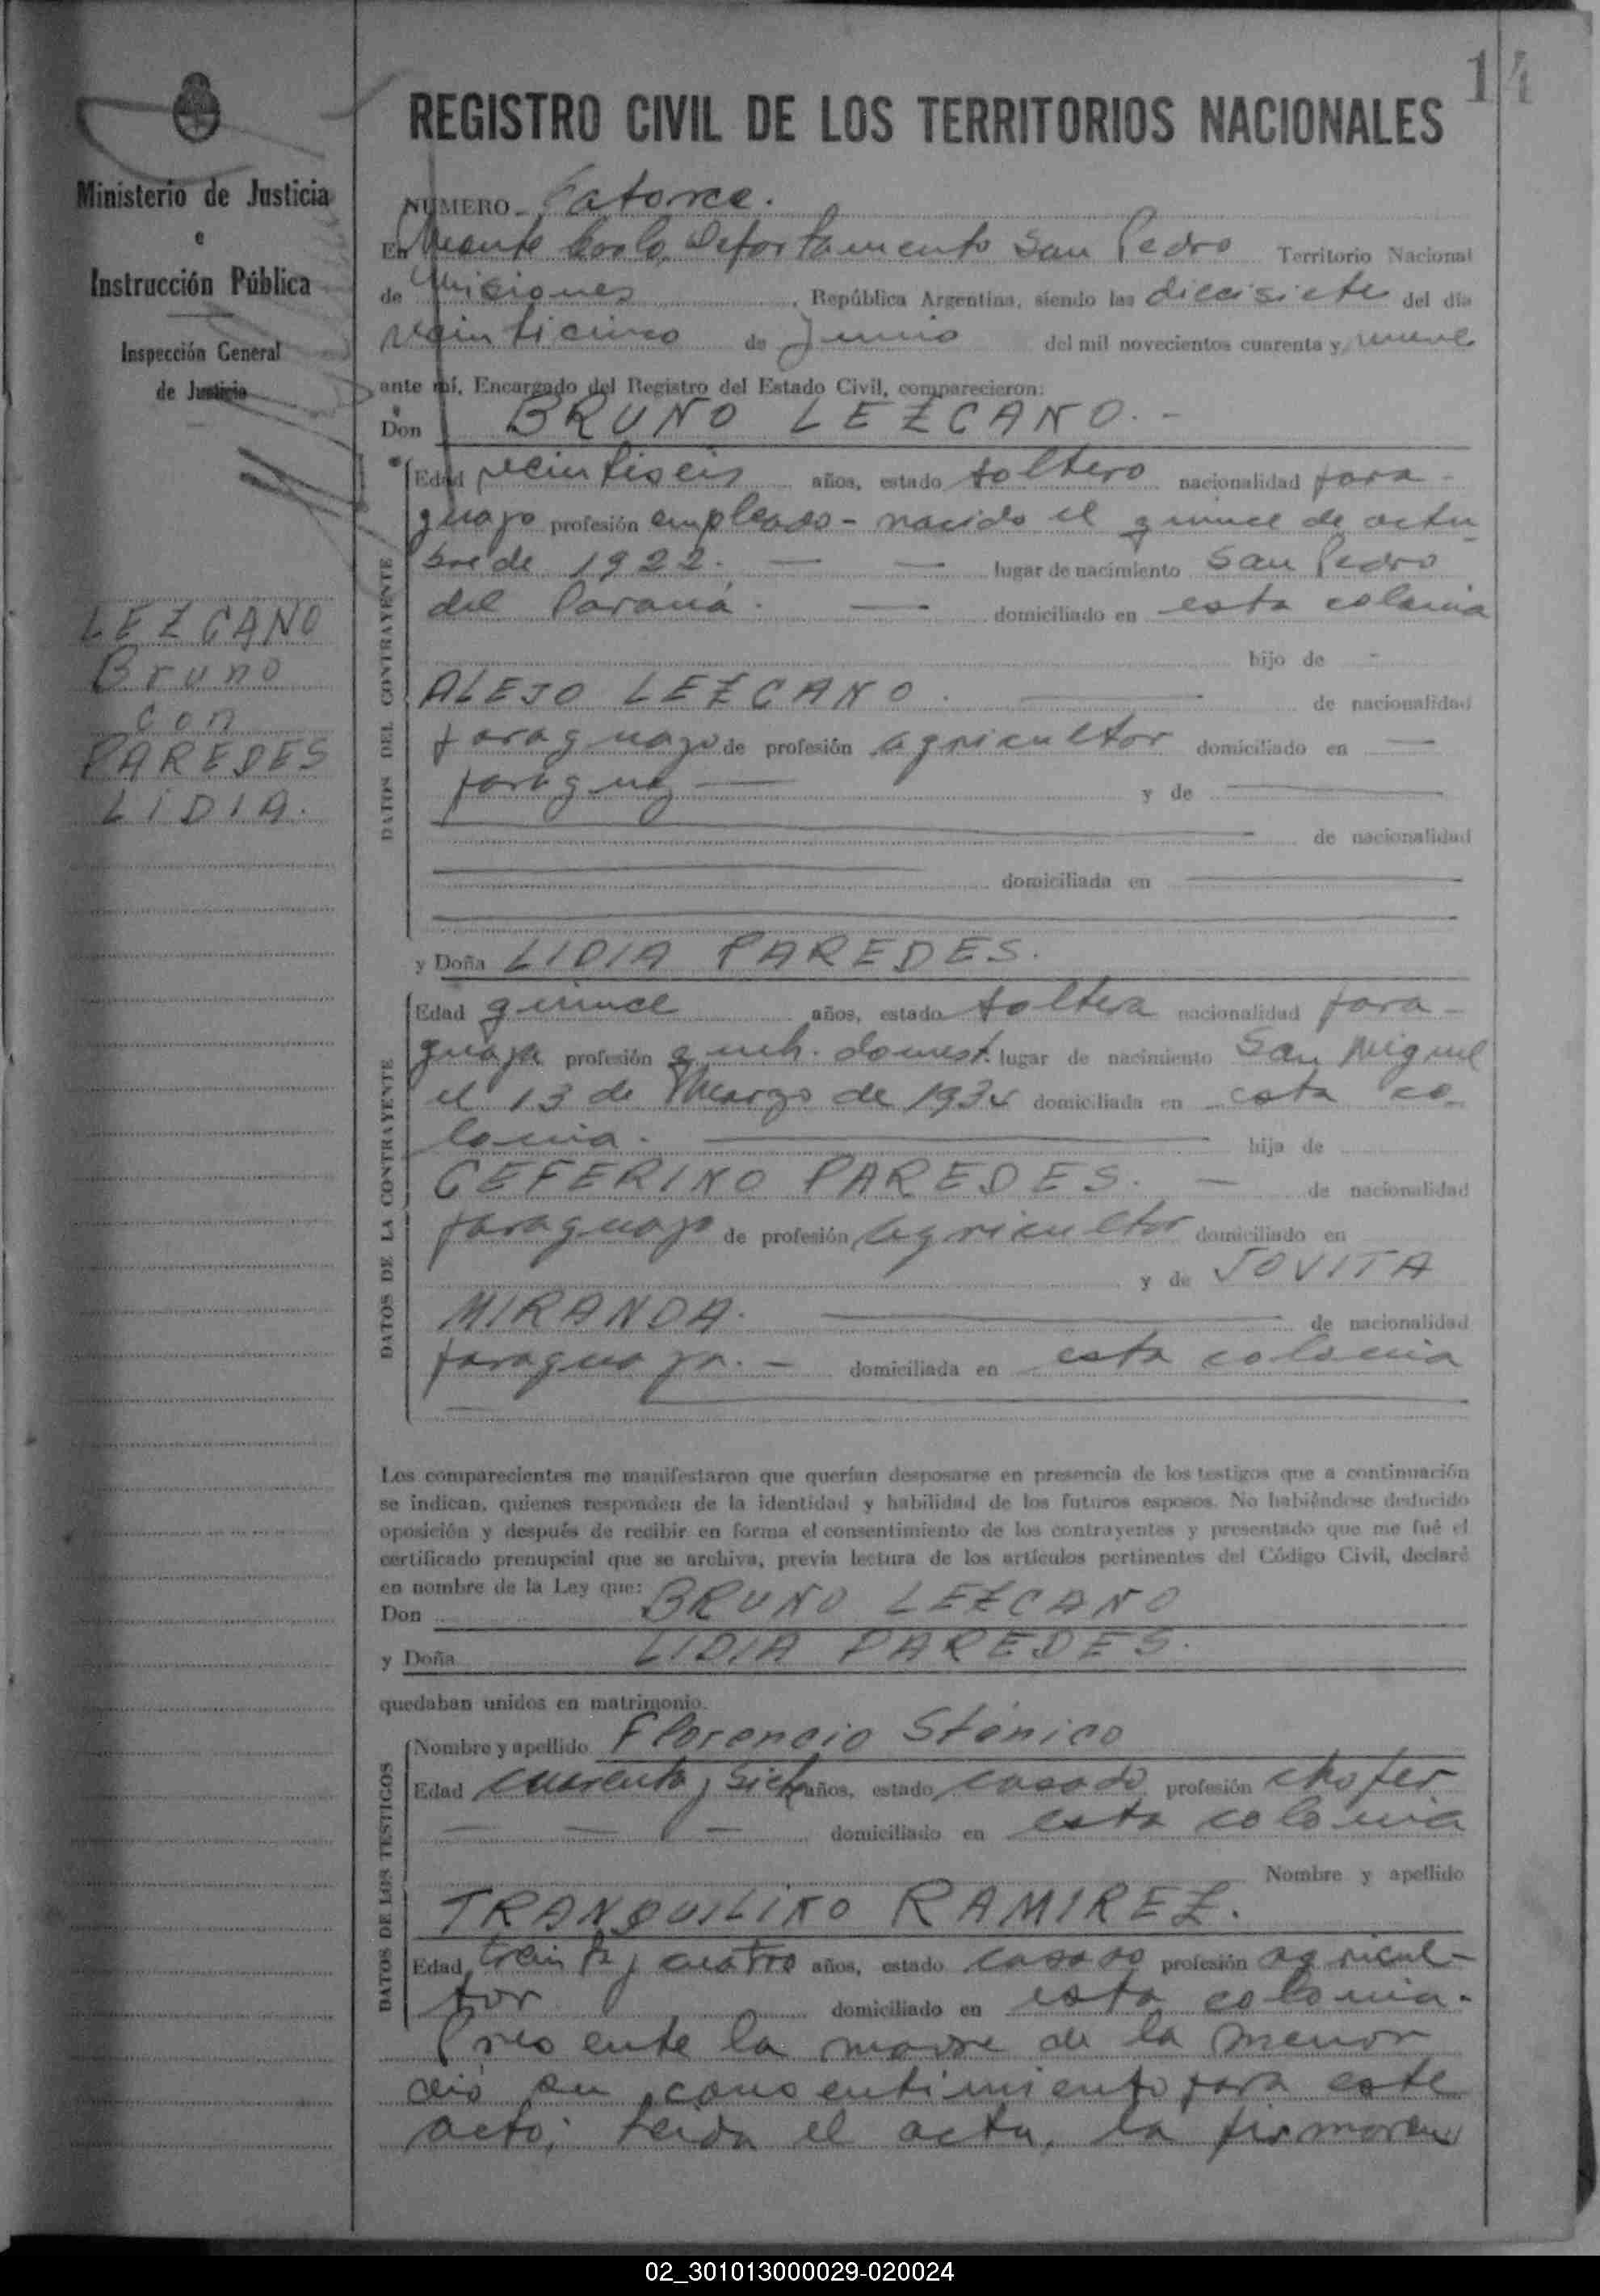 14
REGISTRO CIVIL DE LOS TERRITORIOS NACIONALES
Ministerio de Justicia
e
Instrucción Pública
Inspección General
de Justicia
LEZCANO
Bruno
con
PAREDES
LIDIA.
NUMERO Catorce.
En Monte Carlo, Departamento San Pedro Territorio Nacional
de Misiones, República Argentina, siendo las diecisiete del día
veinticinco de Junio del mil novecientos cuarenta y nueve
ante mí, Encargado del Registro del Estado Civil, comparecieron:
Don BRUNO LEZCANO.-
DATOS DEL CONTRAYENTE
Edad veintiseis años, estado soltero nacionalidad para-
guayo profesión empleado - nacido el quince de octu
bre de 1922. — — lugar de nacimiento San Pedro
del Paraná. — domiciliado en esta colonia
hijo de -
ALEJO LEZCANO. — de nacionalidad
paraguayo de profesión agricultor domiciliado en —
paraguay — y de —
de nacionalidad
domiciliada en
y Doña LIDIA PAREDES.
DATOS DE LA CONTRAYENTE
Edad quince años, estado soltera nacionalidad para-
guaya profesión queh. domest. lugar de nacimiento San Miguel
el 13 de Marzo de 1934 domiciliada en esta co
lonia. — hija de
CEFERINO PAREDES. — de nacionalidad
paraguayo de profesión agricultor domiciliado en
y de JOVITA
MIRANDA. — de nacionalidad
paraguaya. - domiciliada en esta colonia
Los comparecientes me manifestaron que querían desposarse en presencia de los testigos que a continuación
se indican, quienes responden de la identidad y habilidad de los futuros esposos. No habiéndose deducido
oposición y después de recibir en forma el consentimiento de los contrayentes y presentado que me fué el
certificado prenupcial que se archiva, previa lectura de los artículos pertinentes del Código Civil, declaré
en nombre de la Ley que:
Don BRUNO LEZCANO
y Doña LIDIA PAREDES.
quedaban unidos en matrimonio.
DATOS DE LOS TESTIGOS
Nombre y apellido Florencio Sténico
Edad cuarenta y siete años, estado casado profesión chofer
— — — domiciliado en esta colonia
Nombre y apellido
TRANQUILINO RAMIREZ.
Edad treinta y cuatro años, estado casado profesión agricul-
tor domiciliado en esta colonia.
Presente la madre de la menor
dió su consentimiento para este
acto; leida el acta, la firmaron
02_301013000029-020024